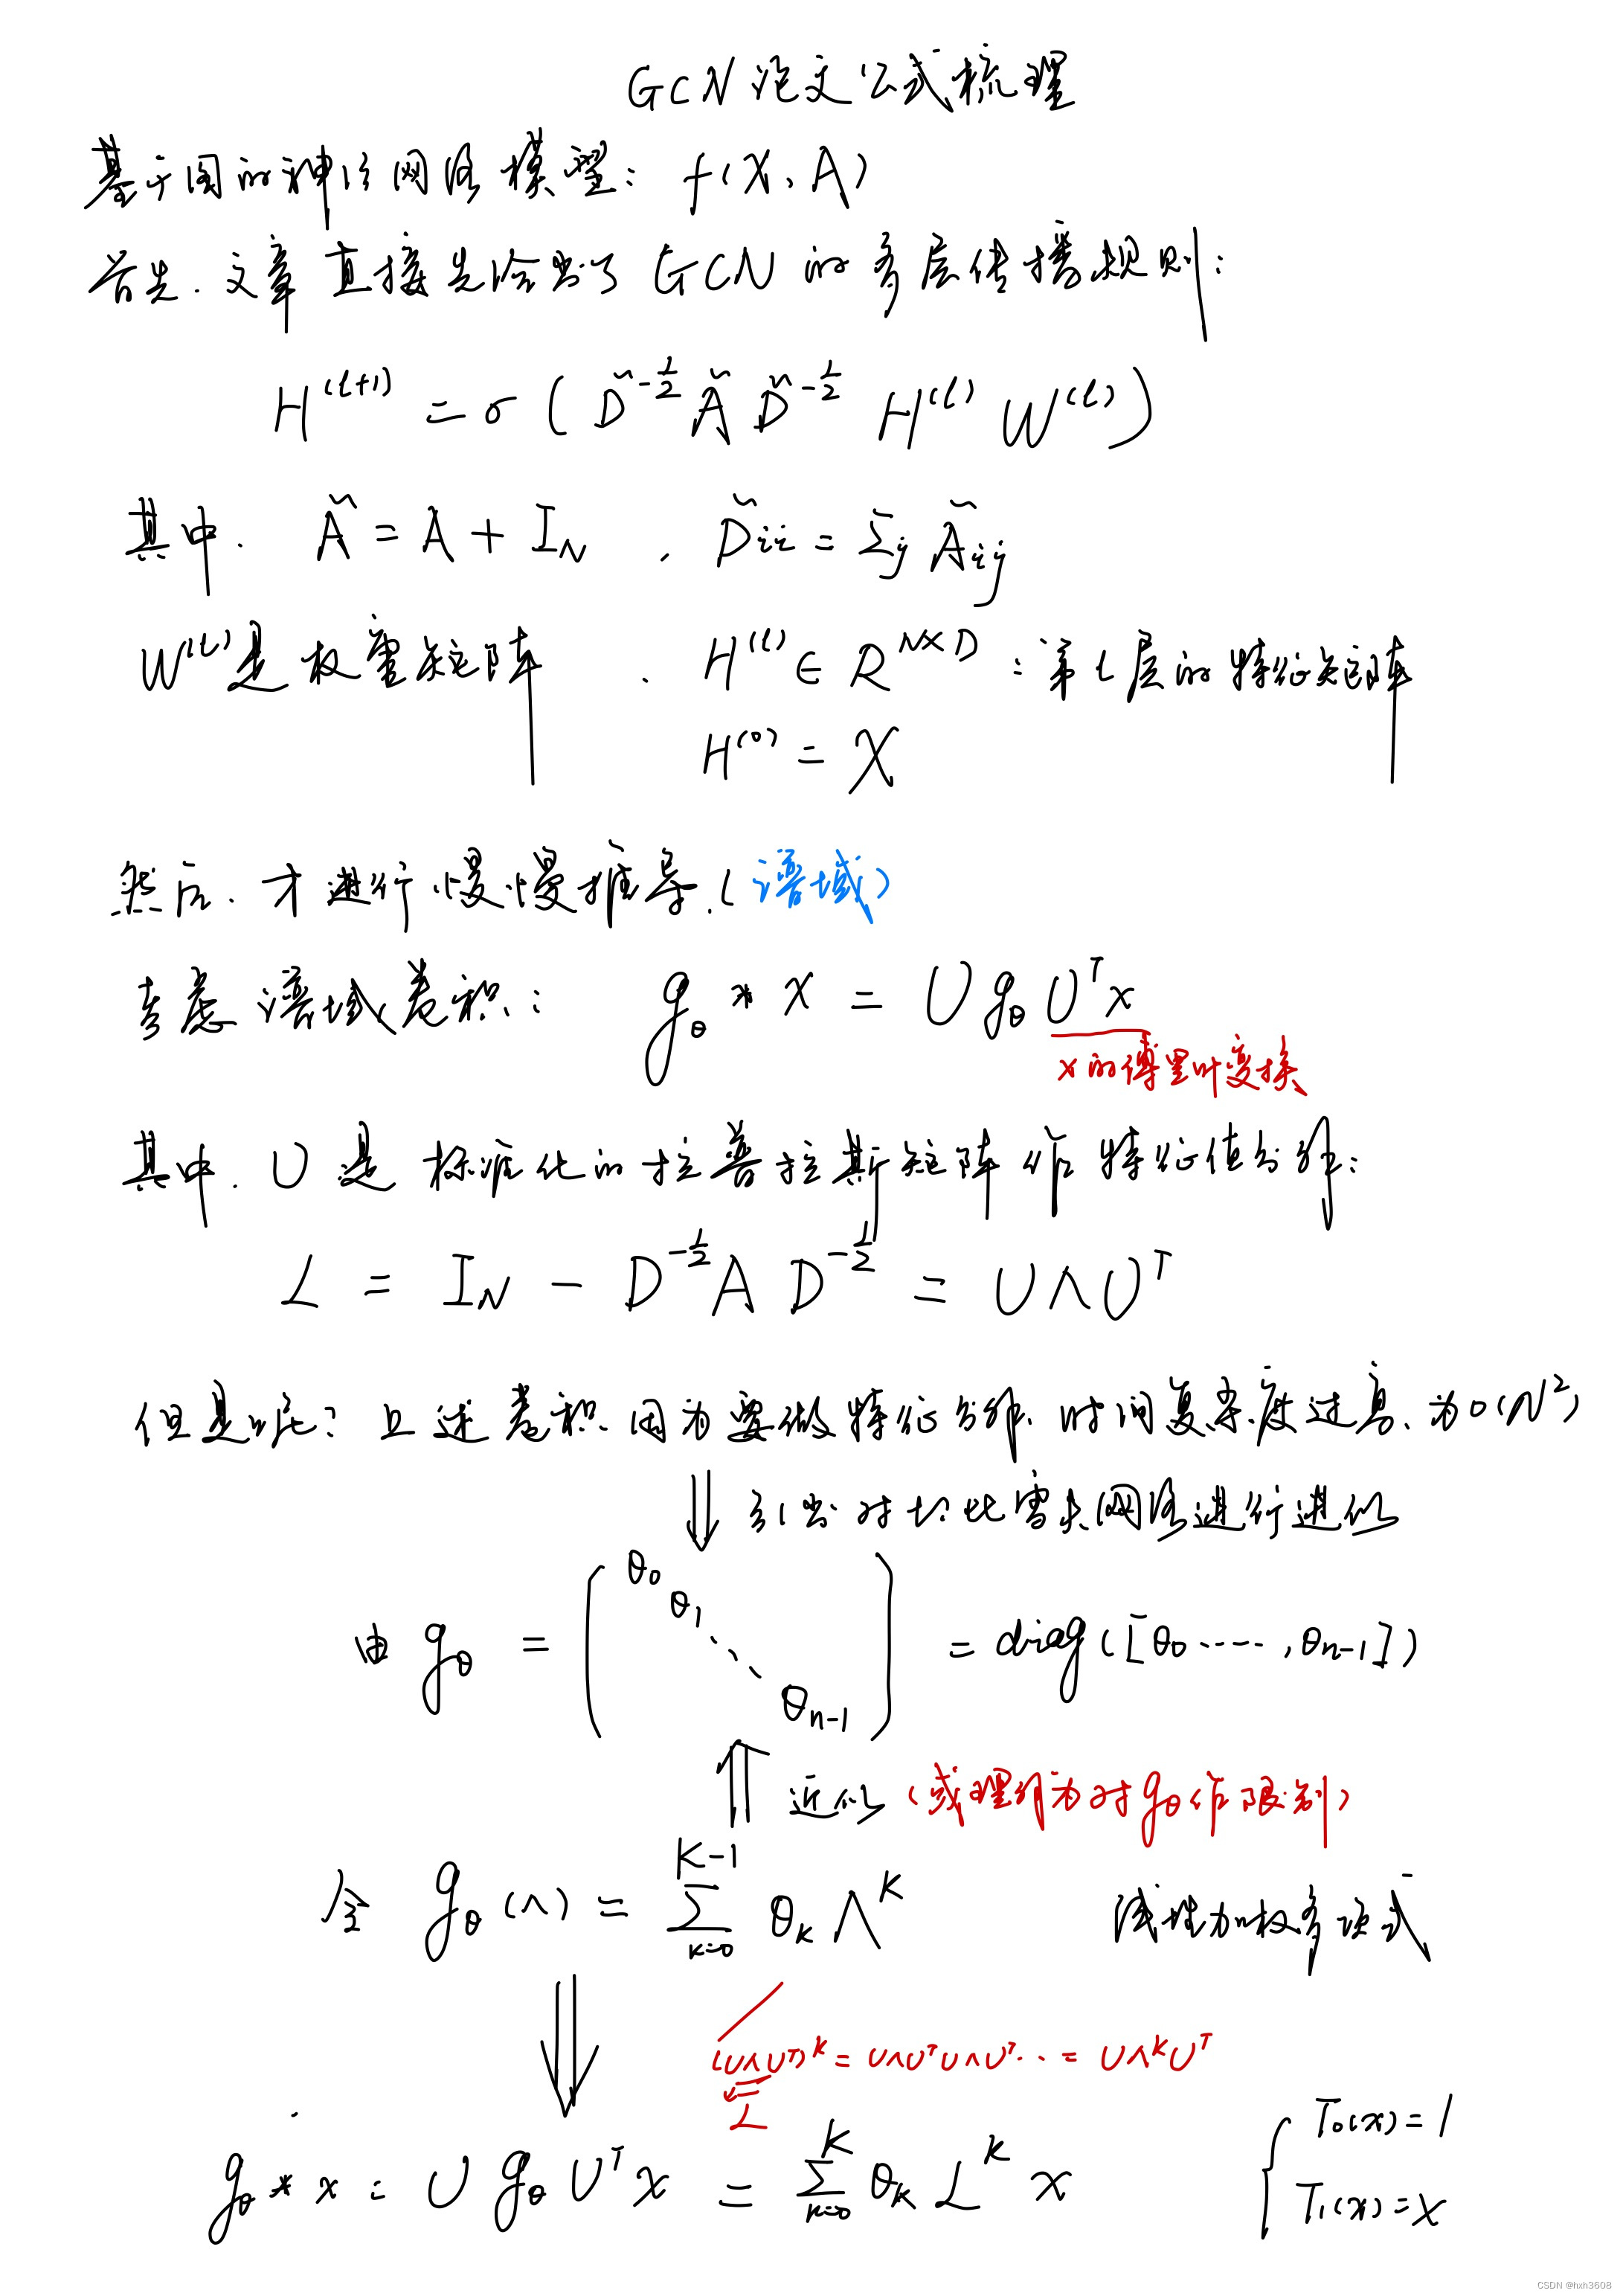 GCN论文公式梳理
基于图的神经网络模型: f(X, A)
首先. 文章直接先给出了 GCN 的多层传播规则:
H^(l+1) = σ ( D̃^{-1/2} Ã D̃^{-1/2} H^(l) W^(l) )
其中. Ã = A + I_N , D̃_ii = Σ_j Ã_ij
W^(l)是权重矩阵 , H^(l) ∈ R^{N×D} : 第 l 层的特征矩阵
H^(0) = X
然后. 才进行慢慢推导.(谱域)
考虑谱域卷积: g_θ * x = U g_θ U^T x
x的傅里叶变换
其中. U 是标准化的拉普拉斯矩阵作特征值分解:
L = I_N - D^{-1/2} A D^{-1/2} = U Λ U^T
但是呢? 上述卷积. 因为要做特征分解. 时间复杂度过高. 为 O(N²)
⇓ 引出对切比雪夫网络进行进似
由 g_θ = ( θ_0 θ_1 ⋱ θ_{n-1} ) = diag([θ_0 ……, θ_{n-1}])
⇑ 近似 (或理解为对 g_θ 作限制)
令 g_θ(Λ) = Σ_{k=0}^{K-1} θ_k Λ^K 线性加权多项式
⇓ (UΛU^T)^K = UΛU^T UΛU^T ·· = UΛ^K U^T
L
g_θ * x = U g_θ U^T x = Σ_{k=0}^{K} θ_k L^K x { T_0(x) = 1
T_1(x) = x
CSDN @hxh3608